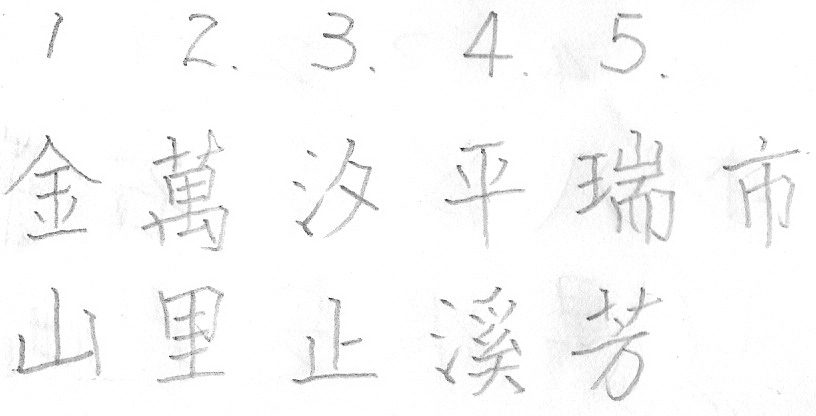 1 2. 3. 4. 5.
金 萬 汐 平 瑞 市
山 里 止 溪 芳